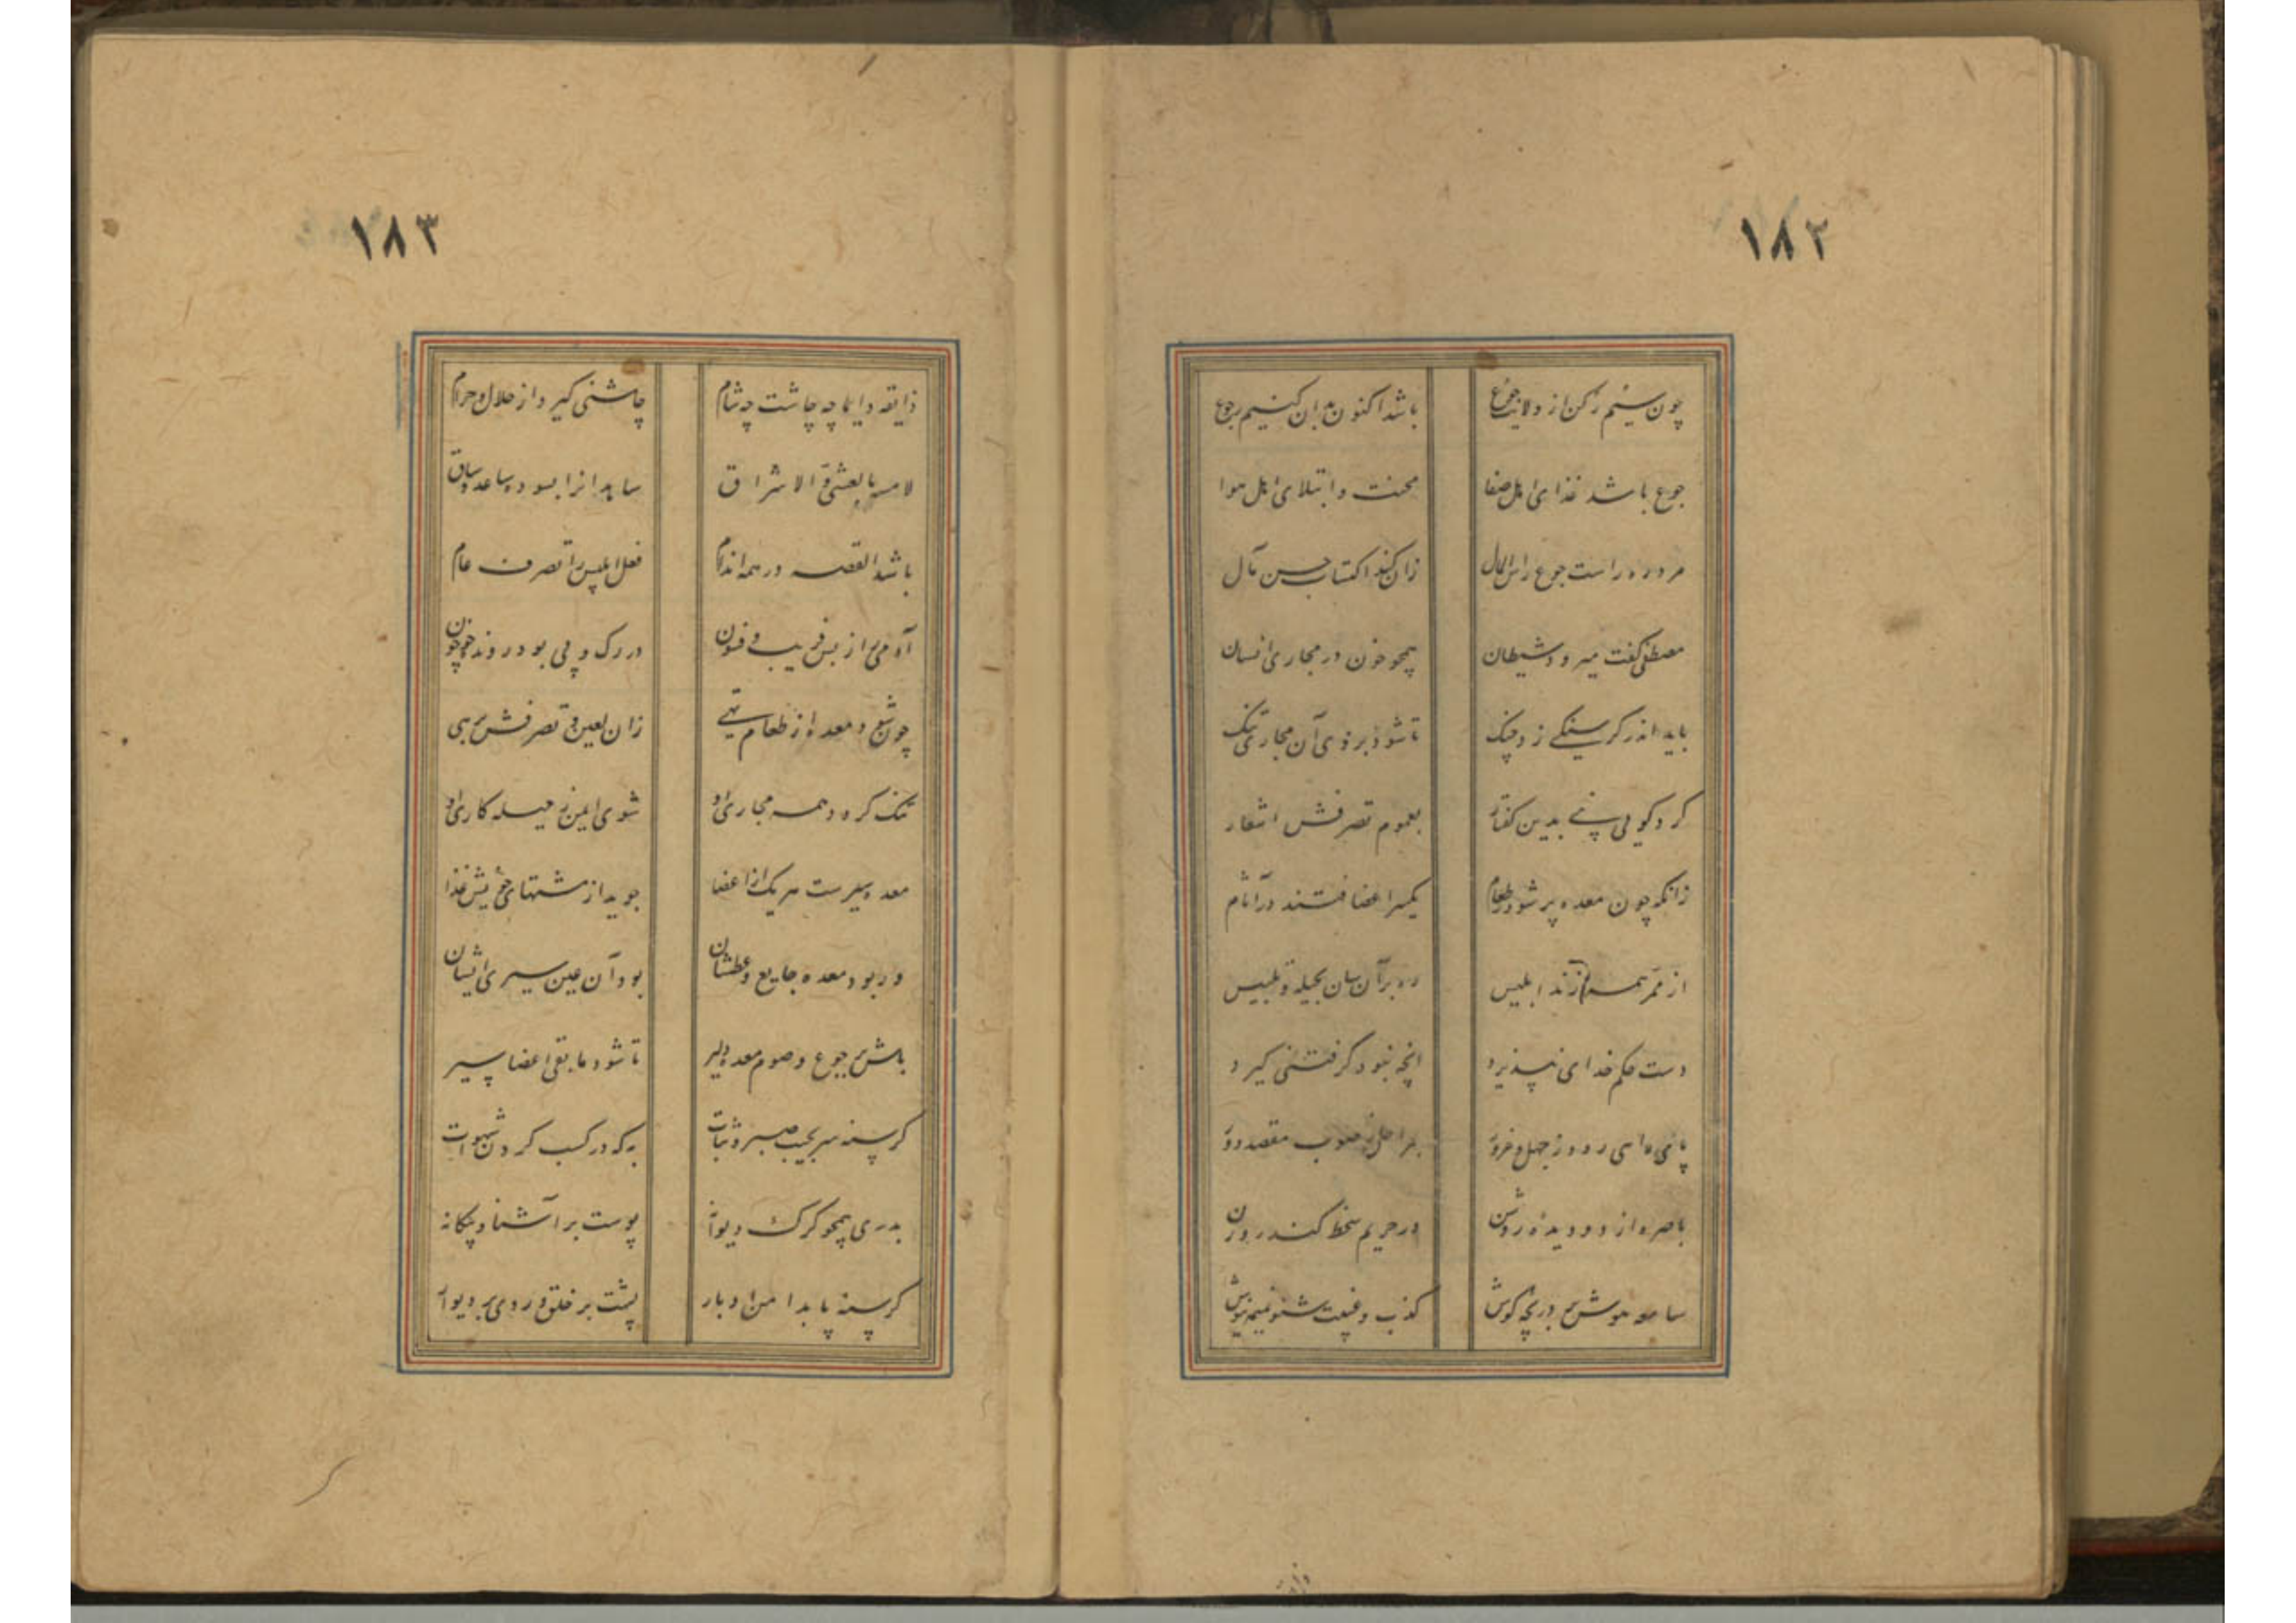 ۱۸۲
چون سیم رکن از ولایت جوع باشد اکنون بدان کنیم رجوع
جوع باشد غذای اهل صفا محنت و ابتلای اهل هوا
مرد ره راست جوع راس المال زان کند اکتساب حسن مآل
مصطفی گفت میرود شیطان همچو خون در مجاری انسان
باید اندر گرسنگی زد چنگ تا شود بر وی آن مجاری تنگ
کرد گویی پی بدین گفتار بعموم تصرفش اشعار
زانکه چون معده پر شود ز طعام یکسر اعضا فتند در آثام
از ممر همه زند ابلیس ره بر آن سان بحیله و تلبیس
دست حکم خدای نپذیرد آنچه نبود گرفتنی گیرد
پای ره ز جهل و غرور بمراحل ز صوب مقصد دور
باصره از دو دیده روشن در حریم سخط کند روزن
سامعه هوش بر دریچه گوش کذب و غیبت شنو نمیمه نیوش
۱۸۳
ذایقه دایما چه چاشت چه شام چاشنی گیرد از حلال و حرام
لامسه بالعشی و الاشراق ساید آنرا بسوده ساعد و ساق
باشد القصه در همه اندام فعل ابلیس را تصرف عام
آدمی را از بس فریب و فنون در رگ و پی بود رونده چو خون
چون شود معده از طعام تهی زان لعین و تصرفش برهی
تنگ گردد همه مجاری او شوی ایمن ز حیله کاری او
معده سیرست هر یک از اعضا جوید از مشتهای خویش غذا
ور بود معده جایع و عطشان بود آن عین سیری ایشان
باش بر جوع و صوم معده دلیر تا شود ما بقی اعضا سیر
گرسنه سر بجیب صبر و ثبات به که در کسب کردن شهوات
بدری همچو گرگ دیوانه پوست بر آشنا و بیگانه
گرسنه پا بدامن ادبار پشت بر خلق و روی بر دیوار